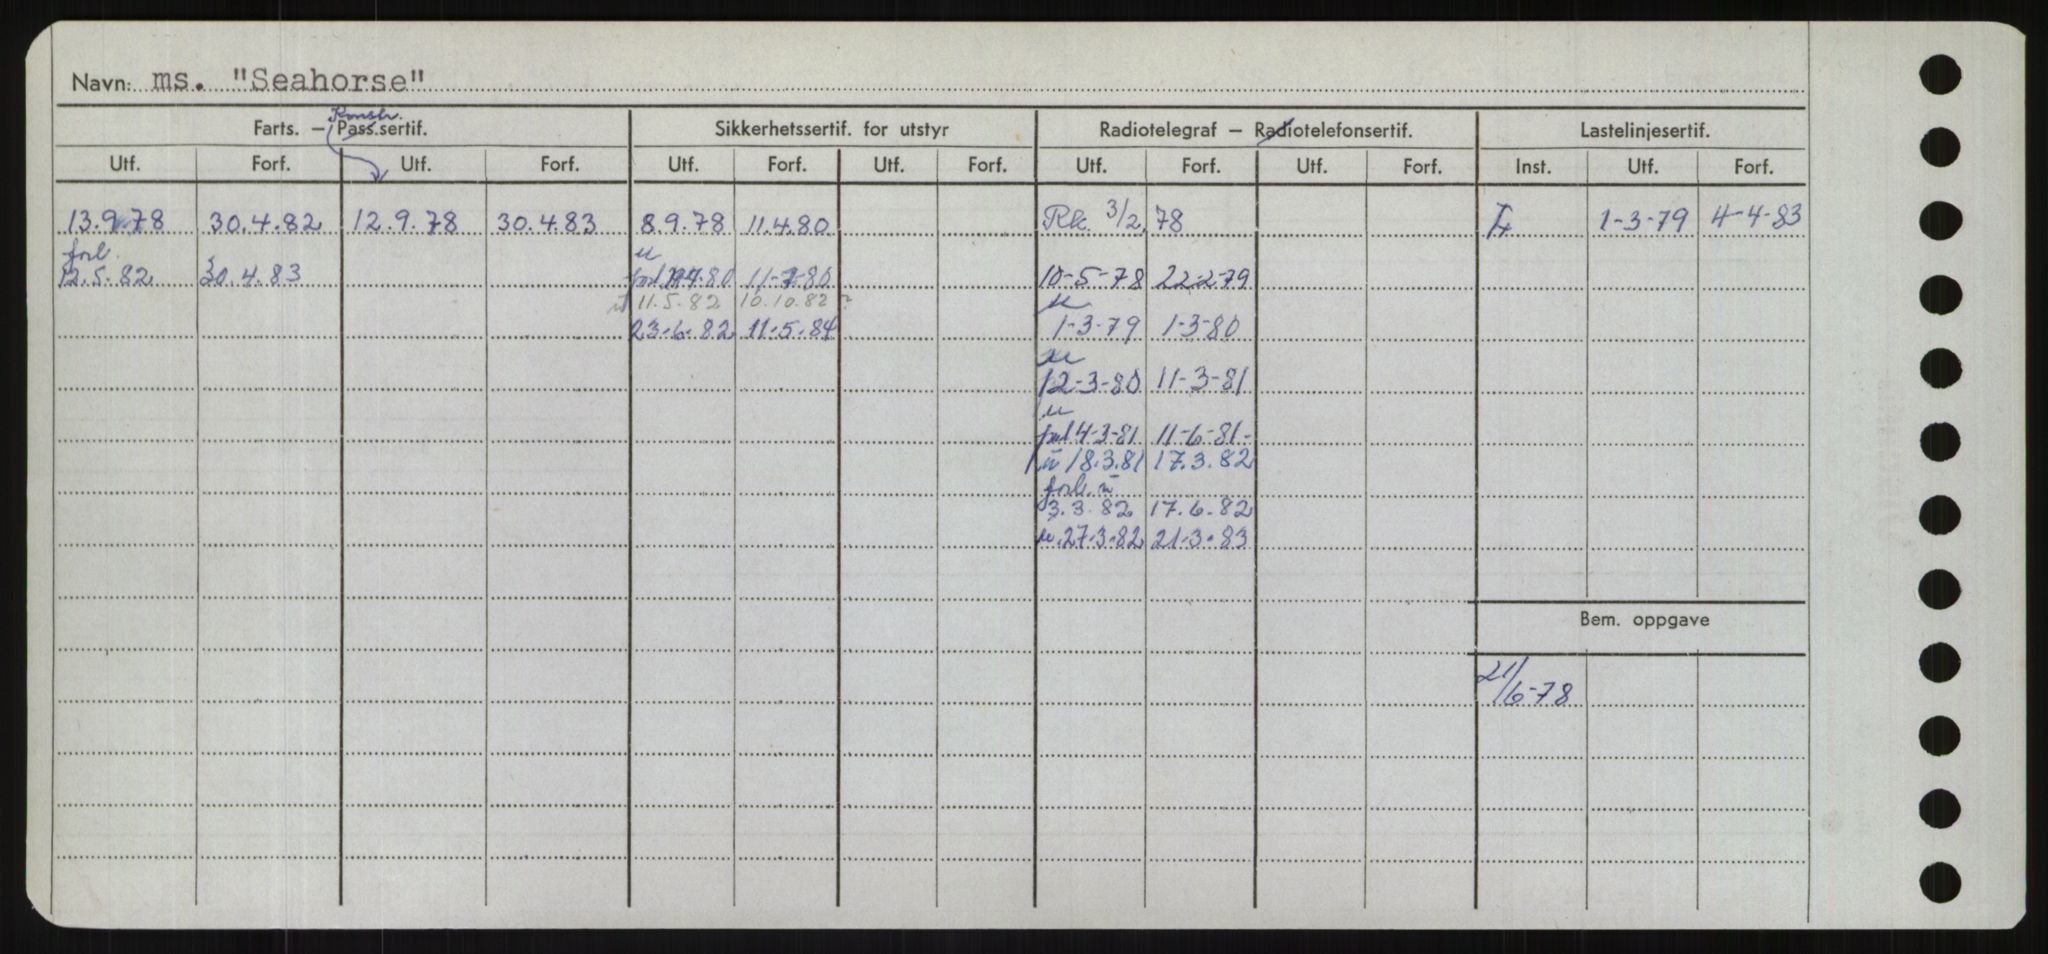 Navn: ms. "Seahorse"
Konstr.
Farts. — Pass.sertif. Sikkerhetssertif. for utstyr Radiotelegraf — Radiotelefonsertif. Lastelinjesertif.
Utf. Forf. Utf. Forf. Utf. Forf. Utf. Forf. Utf. Forf. Utf. Forf. Inst. Utf. Forf.
13.9.78 30.4.82 12.9.78 30.4.83 8.9.78 11.4.80 Rk. 3/2.78 1-3-79 4-4-83
forl. u
12.5.82 30.4.83 11-7-80 10-5-78 22-2-79
11.5.82 10.10.82 ? u
23.6.82 11.5.84 1-3-79 1-3-80
u
12-3-80 11-3-81
u
4-3-81 11-6-81-
u 18.3.81 17.3.82
forl. u
3.3.82 17.6.82
u.27.3.82 21.3.83
Bem. oppgave
21/6-78